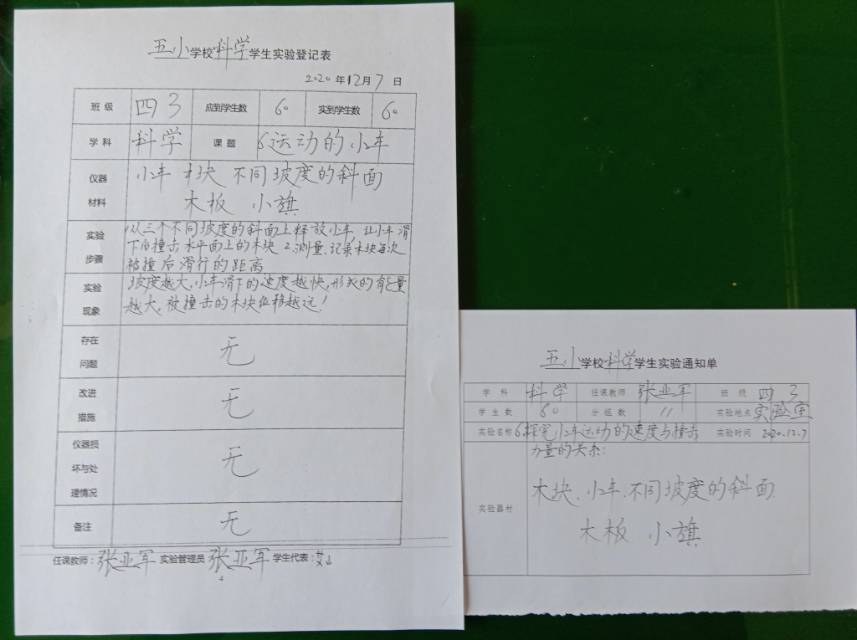 五小学校科学学生实验登记表
2020年12月7日
班级 四3 应到学生数 60 实到学生数 60
学科 科学 课题 6运动的小车
仪器材料 小车 木块 不同坡度的斜面
木板 小旗
实验步骤 1从三个不同坡度的斜面上释放小车,让小车滑
下后撞击水平面上的木块 2.测量、记录木块每次
被撞后滑行的距离
实验现象 坡度越大,小车滑下的速度越快,形成的能量
越大,被撞击的木块位移越远!
存在问题 无
改进措施 无
仪器损坏与处理情况 无
备注 无
任课教师:张亚军 实验管理员 张亚军 学生代表:
五小学校科学学生实验通知单
学科 科学 任课教师 张亚军 班级 四3
学生数 60 分组数 11 实验地点 实验室
实验名称 6探究小车运动的速度与撞击 实验时间 2020.12.7
力量的关系:
实验器材 木块、小车、不同坡度的斜面
木板 小旗